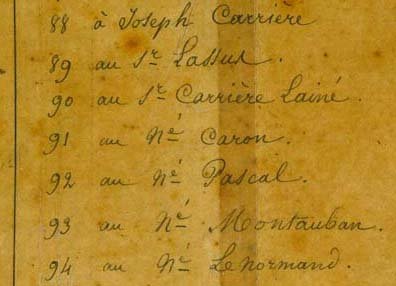 88 à Joseph Carrière
89 au Sr Lassus.
90 au Sr Carrière Lainé.
91 au Né Caron.
92 au Né Pascal.
93 au Né Montauban.
94 au Né Lenormand.